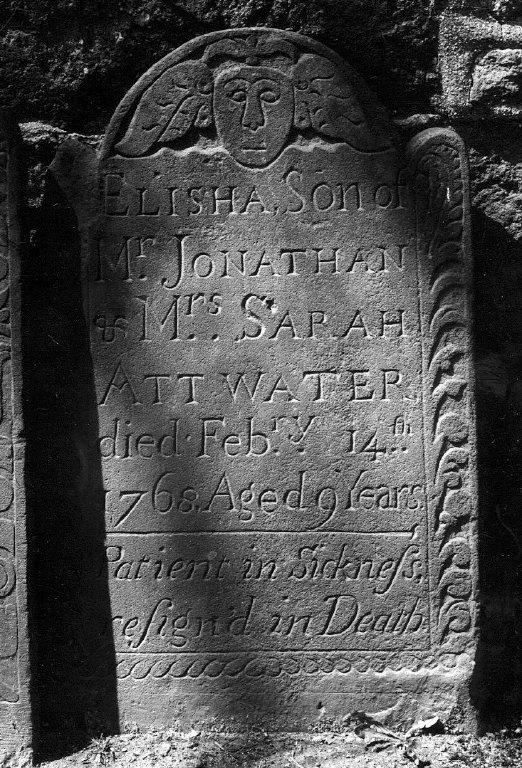 ELISHA, Son of
Mr. JONATHAN
& Mrs. SARAH
ATTWATER,
died Feb.ry 14.th
1768. Aged 9 Years.
Patient in Sickneſs,
reſign'd in Death